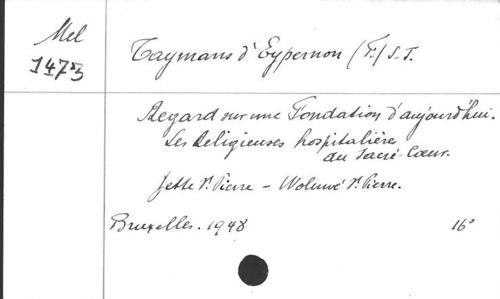 Mel
1473
Taymans d'Eypernon (F.) S.J.
Regard sur une Fondation d'aujourd'hui.
Les Religieuses hospitalière
du Sacré-Cœur.
Jette St Pierre - Woluwé St Pierre.
Bruxelles. 1948
16°